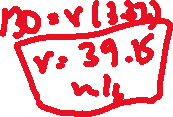 130 = r(3.32)
r = 39.15
m/s